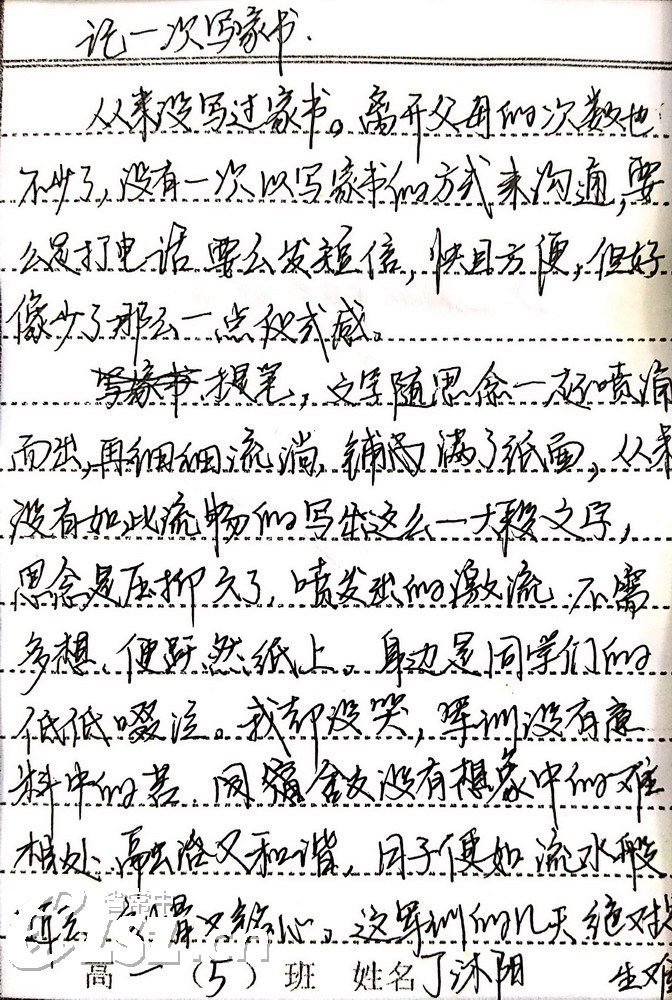 记一次写家书.
从来没写过家书。离开父母的次数也
不少了,没有一次以写家书的方式来沟通,要
么是打电话 要么发短信,快且方便,但好
像少了那么一点仪式感。
提笔,文字随思念一
而出,再细细流淌,铺满了纸面,从来
没有如此流畅的写出这么一大段文字,
思念是压抑久了,喷发出的激流.不需
多想,便跃然纸上。身边是同学们的
低低啜泣。我却没哭,军训没有意
料中的苦.同宿舍友没有想象中的难
相处.融洽又和谐,日子便如流水般
逝去,又 心。这军训的几天绝对
高一(5)班 姓名丁沐阳 生难